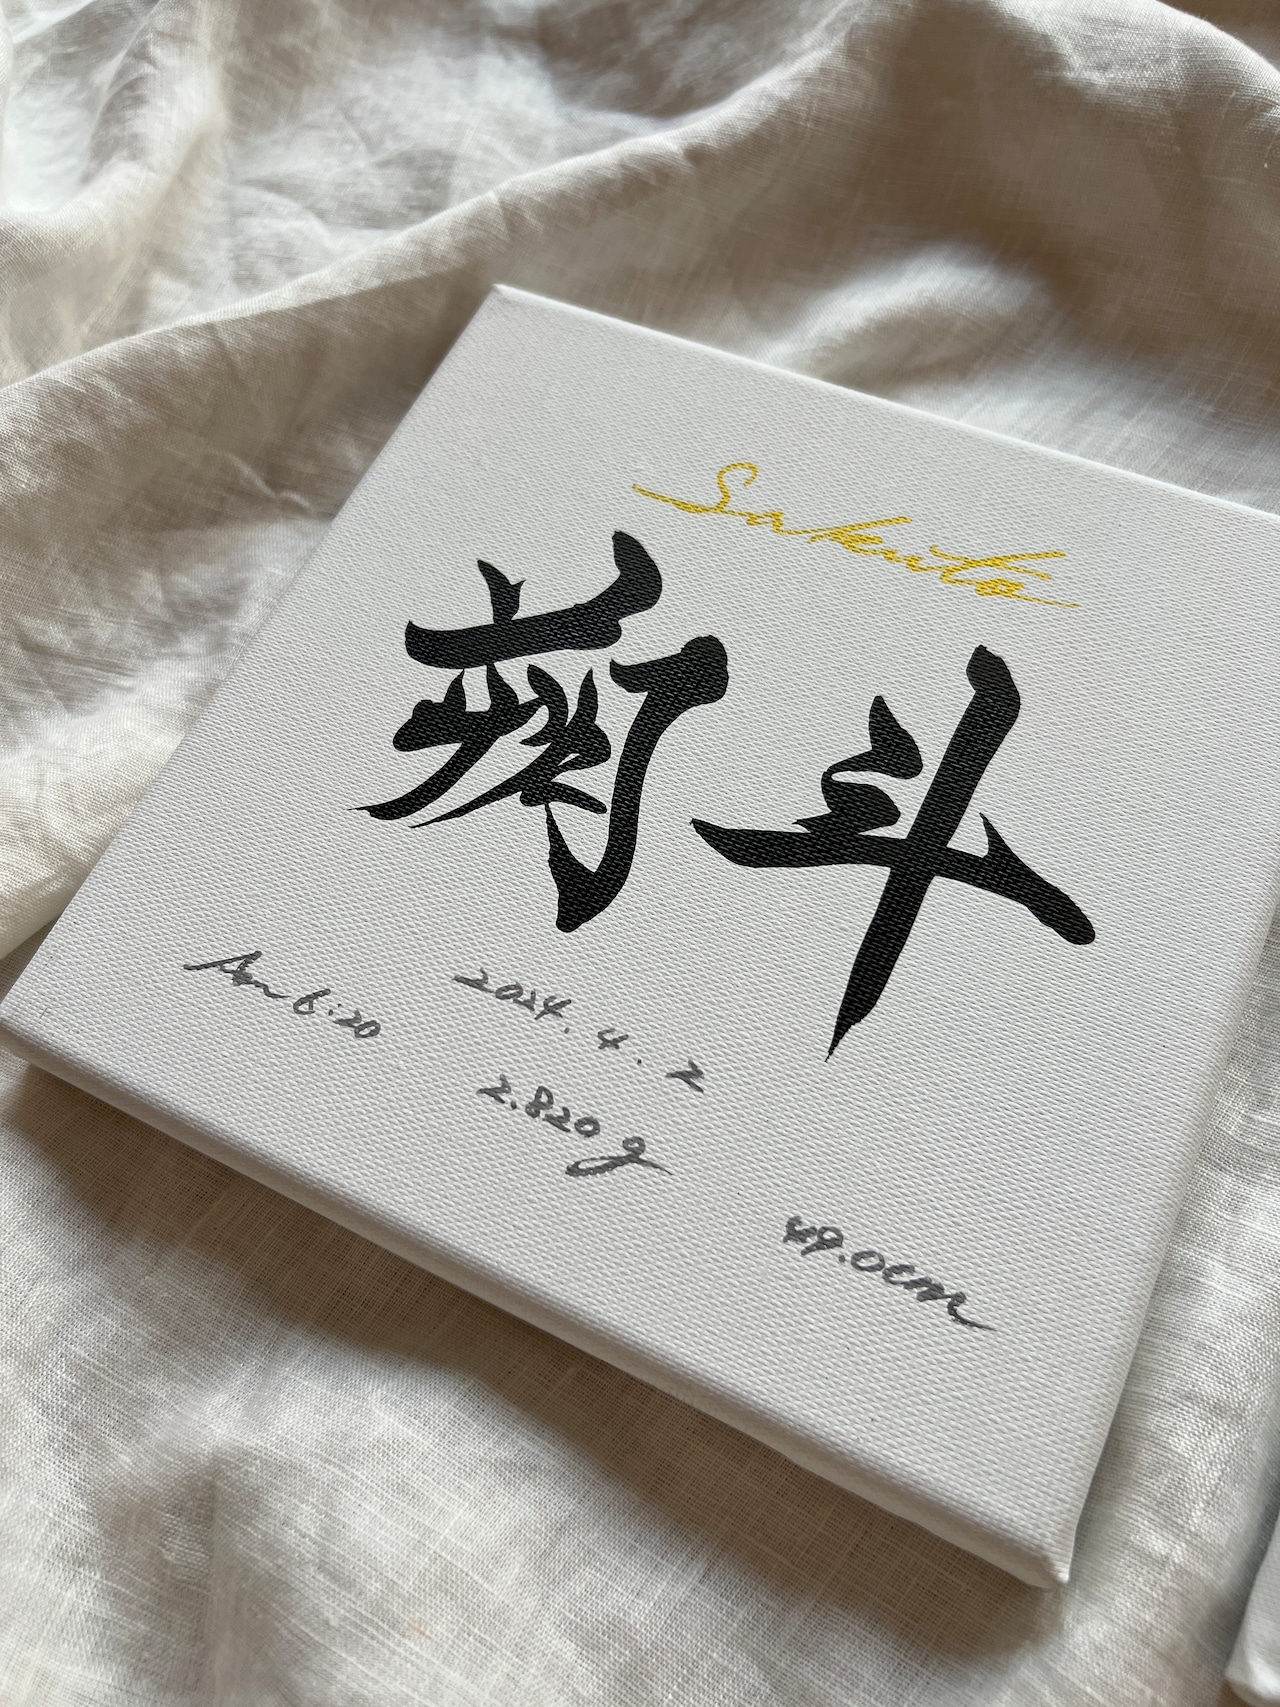 Sakuto
朔斗
Am 6:20
2024.4.2
2.820g
49.0cm